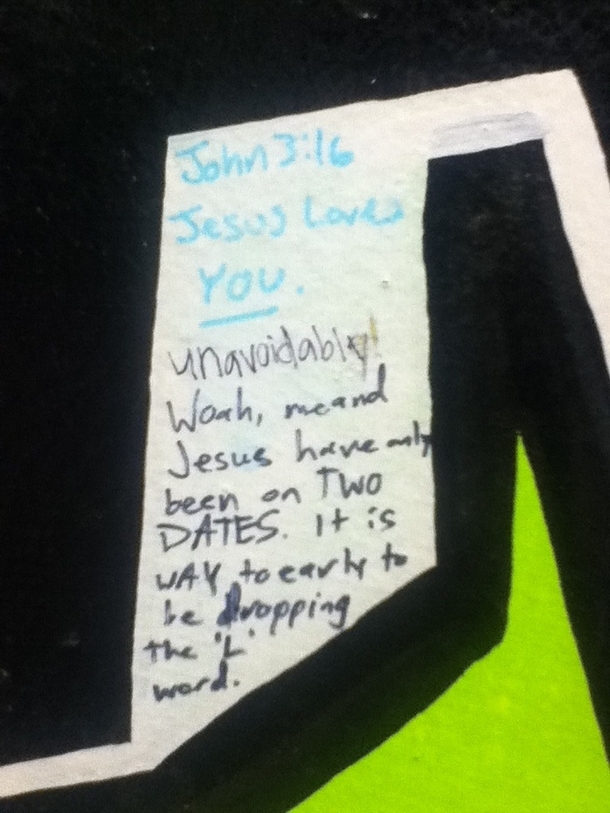 John 3:16
Jesus Loves
YOU.
unavoidably!
Woah, me and
Jesus have only
been on TWO
DATES. It is
WAY to early to
be dropping
the 'L'
word.